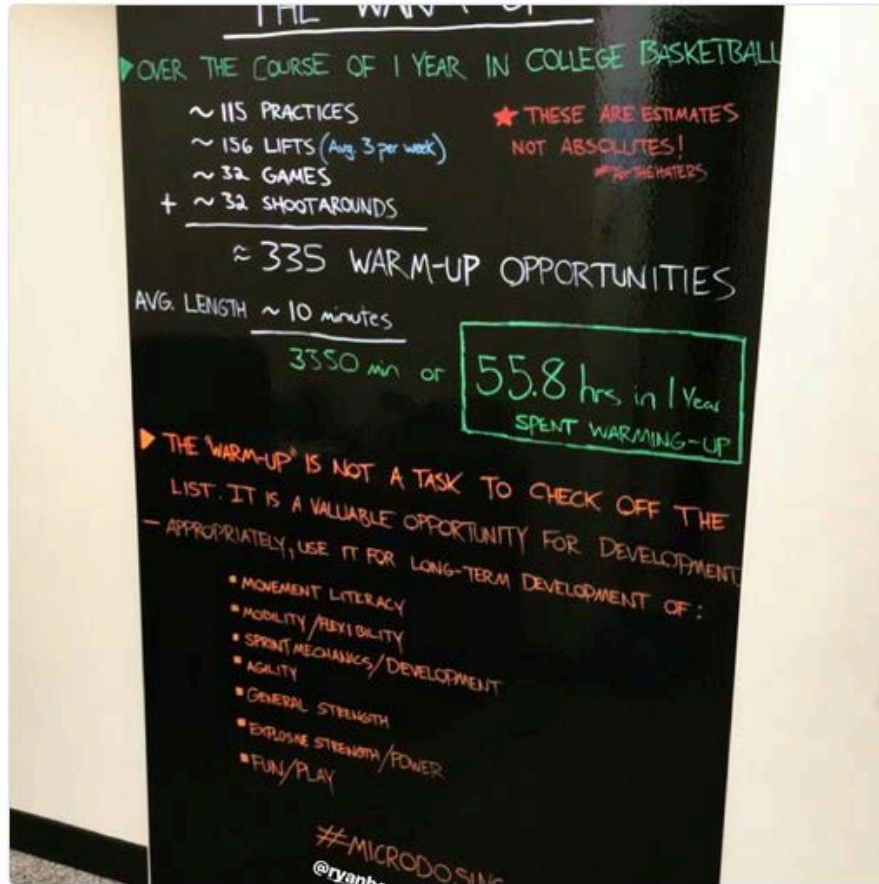 THE WARM-UP
▶ OVER THE COURSE OF 1 YEAR IN COLLEGE BASKETBALL
~ 115 PRACTICES
~ 156 LIFTS (Avg. 3 per week)
~ 32 GAMES
+ ~ 32 SHOOTAROUNDS
★ THESE ARE ESTIMATES
NOT ABSOLUTES!
#forTHEHATERS
≈ 335 WARM-UP OPPORTUNITIES
AVG. LENGTH ~ 10 minutes
3350 min or
55.8 hrs in 1 Year
SPENT WARMING-UP
▶ THE "WARM-UP" IS NOT A TASK TO CHECK OFF THE
LIST. IT IS A VALUABLE OPPORTUNITY FOR DEVELOPMENT
— APPROPRIATELY, USE IT FOR LONG-TERM DEVELOPMENT OF:
▪ MOVEMENT LITERACY
▪ MOBILITY/FLEXIBILITY
▪ SPRINT MECHANICS/DEVELOPMENT
▪ AGILITY
▪ GENERAL STRENGTH
▪ EXPLOSIVE STRENGTH/POWER
▪ FUN/PLAY
#MICRODOSING